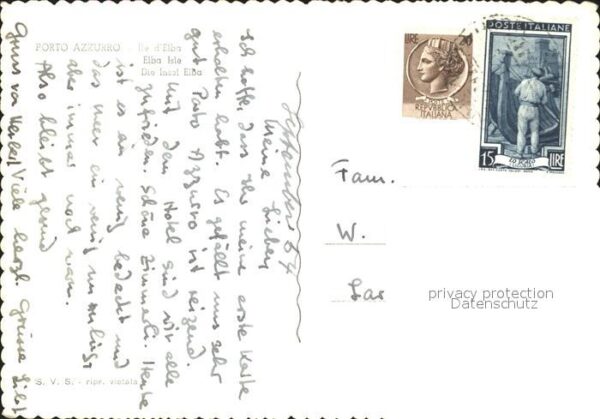 PORTO AZZURRO - Ile d'Elba
Elba Isle
Die Insel Elba
September 54
Meine Lieben
Ich hoffe, dass Ihr meine erste Karte
erhalten habt. Es gefällt uns sehr
gut Porto Azzurro ist reizend.
Mit dem Hotel sind wir alle
zufrieden. Schöne Zimmerli. Heute
ist es ein wenig bedeckt und
das Meer ein wenig unruhig
aber immer noch warm.
Also bleibt gesund
Viele herzl. Grüsse
Gruss von
"S. V. S." - ripr. vietata
LIRE
REPVBBLICA
ITALIANA
POSTE ITALIANE
15 LIRE
LO SCALO
Fam.
W.
privacy protection
Datenschutz